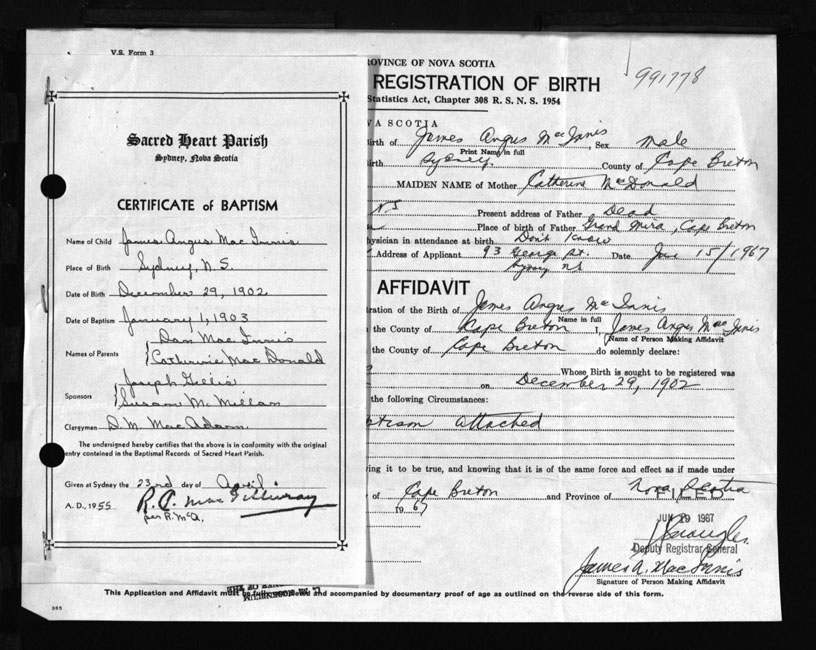 V.S. Form 3
Sacred Heart Parish
Sydney, Nova Scotia
CERTIFICATE of BAPTISM
Name of Child James Angus Mac Innis
Place of Birth Sydney, N.S.
Date of Birth December 29, 1902
Date of Baptism January 1, 1903
Names of Parents
Dan Mac Innis
Catherine Mac Donald
Sponsors
Joseph Gillis
Susan Mc Millan
Clergyman D.M. Mac Adam
The undersigned hereby certifies that the above is in conformity with the original
entry contained in the Baptismal Records of Sacred Heart Parish.
Given at Sydney the 23rd day of April
A. D., 1955 R. C. Mac Gillivray
per R. McA.
985
ROVINCE OF NOVA SCOTIA
991778
REGISTRATION OF BIRTH
Statistics Act, Chapter 308 R. S. N. S. 1954
VA SCOTIA
Birth of James Angus McInnis, Sex male
Print Name in full
irth Sydney. County of Cape Breton
MAIDEN NAME of Mother Catherine McDonald
N.S. Present address of Father Dead
Place of birth of Father Grand Mira, Cape Breton
hysician in attendance at birth Don't Know
Address of Applicant 93 George St. Date June 15/1967
Sydney NS
AFFIDAVIT
tration of the Birth of James Angus McInnis
Name in full
the County of Cape Breton I, James Angus MacInnis
Name of Person Making Affidavit
the County of Cape Breton do solemnly declare:
Whose Birth is sought to be registered was
on December 29, 1902
the following Circumstances:
ptism attached
ving it to be true, and knowing that it is of the same force and effect as if made under
of Cape Breton and Province of Nova Scotia
1967
FILED
JUN 29 1967
Deputy Registrar General
James A. MacInnis
Signature of Person Making Affidavit
This Application and Affidavit must be fully completed and accompanied by documentary proof of age as outlined on the reverse side of this form.